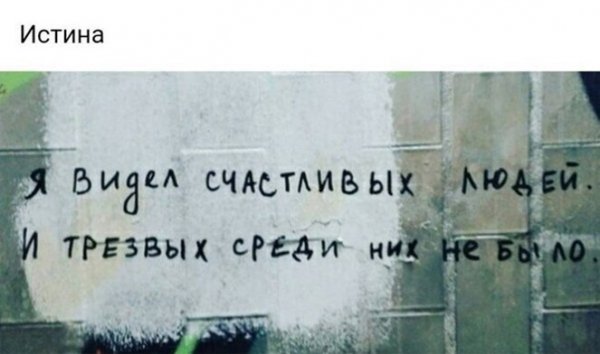 Истина
Я ВИДЕЛ СЧАСТЛИВЫХ ЛЮДЕЙ.
И ТРЕЗВЫХ СРЕДИ НИХ НЕ БЫЛО.